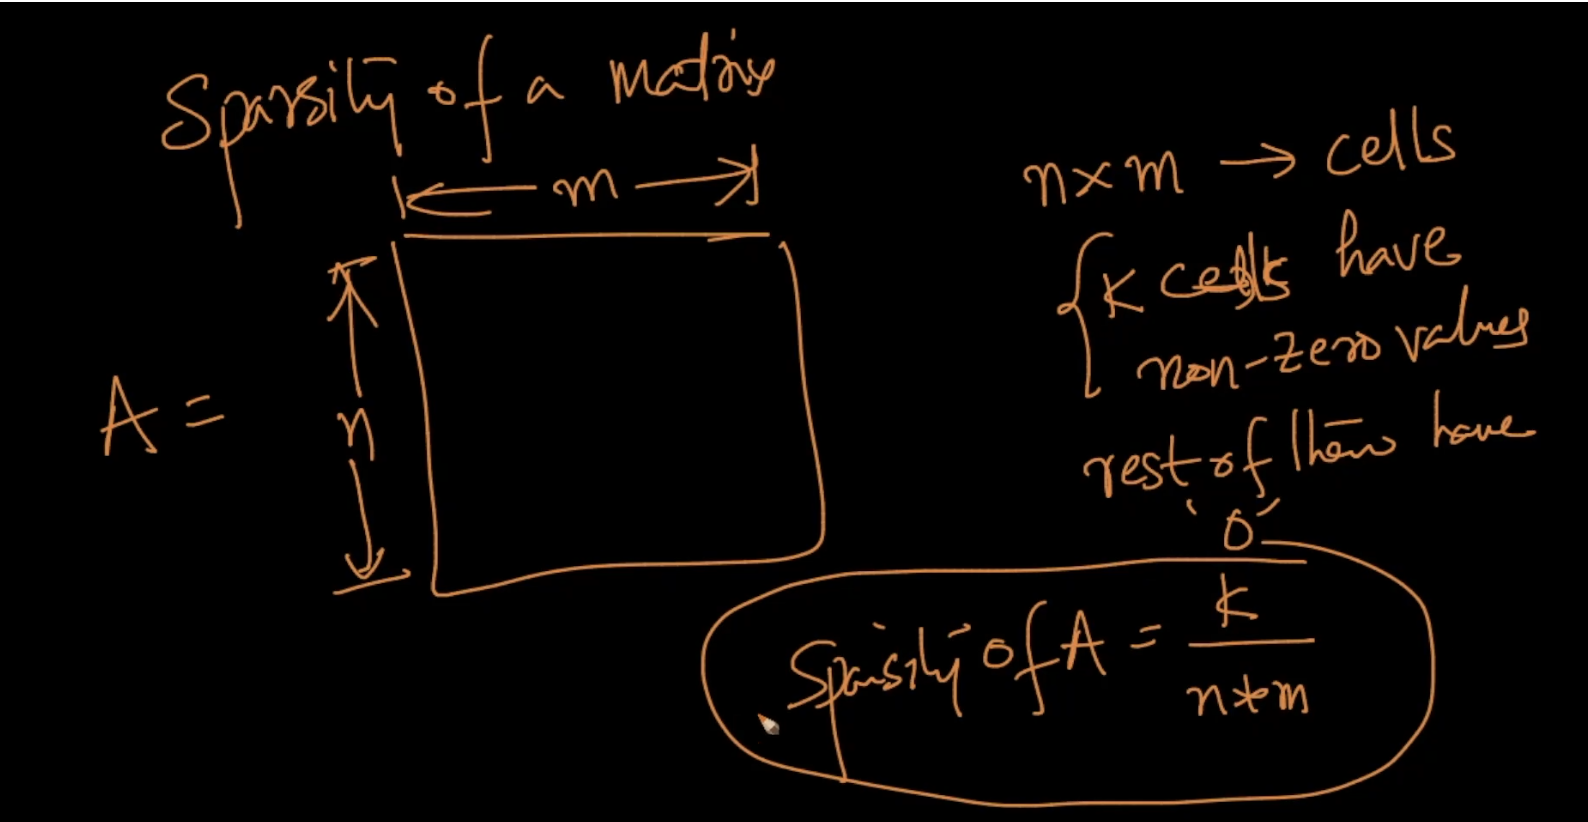 Sparsity of a matrix
m
n
A =
n×m → cells
K cells have
non-zero values
rest of them have
'0'
Sparsity of A = K
n*m